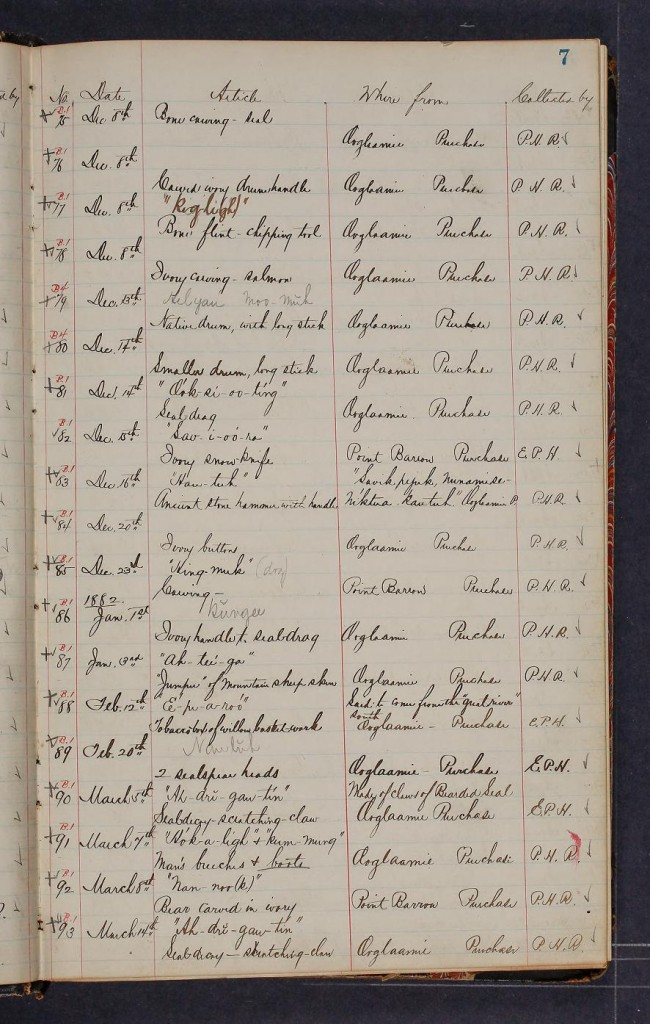 7
No. Date Article Where from Collected by
B.1 75 Dec 8th Bone carving - seal Ooglaamie Purchase P.H.R.
B.1 76 Dec. 8th Carved ivory drum handle Ooglaamie Purchase P.H.R.
B.1 77 Dec. 8th
Bone flint-chipping tool Ooglaamie Purchase P.H.R.
B.1 78 Dec. 8th Ivory carving - salmon Ooglaamie Purchase P.H.R.
B4 79 Dec. 13th
Native drum, with long stick Ooglaamie Purchase P.H.R.
B4 80 Dec. 14th Smaller drum, long stick Ooglaamie Purchase P.H.R.
B.1 81 Dec. 14th "Oók-si-oo-tíng"
Seal drag Ooglaamie. Purchase P.H.R.
B.1 82 Dec. 15th "Sav-i-oó-ra"
Ivory snow-knife Point Barrow Purchase E.P.H.
B.1 83 Dec. 16th "Kau-tuh"
Ancient stone hammer with handle Ooglaamie P. P.H.R.
B.1 84 Dec. 20th Ivory button Ooglaamie Purchase P.H.R.
B.1 85 Dec. 23rd "King-muk" (dog)
Carving - Point Barrow Purchase P.H.R.
1882.
B.1 86 Jan. 1st
Ivory handle to seal drag Ooglaamie Purchase P.H.R.
B.1 87 Jan. 3rd "Ah-teé-ga"
"Jumper" of Mountain sheep skin Ooglaamie Purchase P.H.R.
B.1 88 Feb. 12th "E-pu-a-roó" Said to come from the "great river" south
Tobacco box of willow basket-work Ooglaamie - Purchase E.P.H.
B.1 89 Feb. 20th
2 seal spear heads Ooglaamie - Purchase E.P.H.
B.1 90 March 5th "Ah-drĭ-gaw-tin" Made of claws of Bearded Seal
Sealdecoy-scratching-claw Ooglaamie Purchase E.P.H.
B.1 91 March 7th
Man's breeches & boots Ooglaamie Purchase P.H.R.
B.1 92 March 8th "Nan-noo(k)"
Bear carved in ivory Point Barrow Purchase P.H.R.
B.1 93 March 14th "Ah-drĭ-gaw-tin"
Sealdecoy - scratching-claw Ooglaamie Purchase P.H.R.